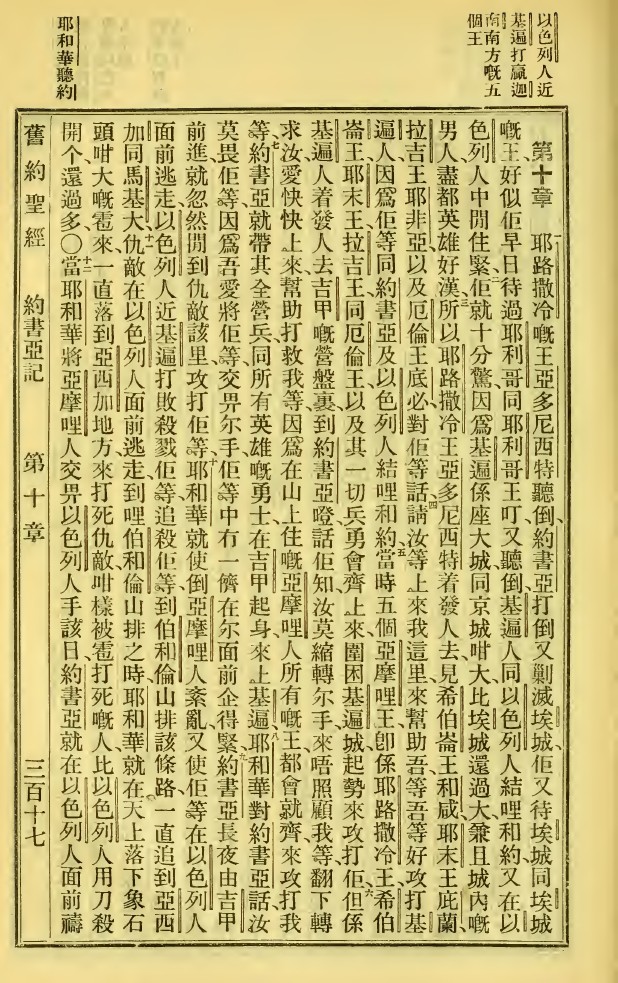 以色列人近
基遍打贏迦
南南方嘅五
個王
第十章　耶路撒冷嘅王亞多尼西特聽倒約書亞打倒又剿滅埃城佢又待埃城同埃城
嘅王好似佢早日待過耶利哥同耶利哥王叮又聽倒基遍人同以色列人結哩和約又在以
色列人中間住緊二佢就十分驚因爲基遍係座大城同京城咁大比埃城還過大兼且城內嘅
男人盡都英雄好漢三所以耶路撒冷王亞多尼西特着發人去見希伯崙王和咸耶末王庇蘭
拉吉王耶非亞以及厄倫王底必對佢等話四請汝等上來我這里來幫助吾等吾等好攻打基
遍人因爲佢等同約書亞及以色列人結哩和約五當時五個亞摩哩王卽係耶路撒冷王希伯
崙王耶末王拉吉王同厄倫王以及其一切兵勇會齊上來圍困基遍城起勢來攻打佢六但係
基遍人着發人去吉甲嘅營盤裏到約書亞嗰話佢知汝莫縮轉尔手來唔照顧我等翻下轉
求汝愛快快上來幫助打救我等因爲在山上住嘅亞摩哩人所有嘅王都會就齊來攻打我
等七約書亞就帶其全營兵同所有英雄嘅勇士在吉甲起身來上基遍八耶和華對約書亞話汝
莫畏佢等因爲吾愛將佢等交畀尔手佢等中冇一儕在尔面前企得緊九約書亞長夜由吉甲
前進就忽然間到仇敵該里攻打佢等十耶和華就使倒亞摩哩人紊亂又使佢等在以色列人
面前逃走以色列人近基遍打敗殺戮佢等追殺佢等到伯和倫山排該條路一直追到亞西
加同馬基大十一仇敵在以色列人面前逃走到哩伯和倫山排之時耶和華就在天上落下象石
頭咁大嘅雹來一直落到亞西加地方來打死仇敵咁樣被雹打死嘅人比以色列人用刀殺
開个還過多〇十二當耶和華將亞摩哩人交畀以色列人手該日約書亞就在以色列人面前禱
耶和華聽約
舊約聖經　約書亞記　第十章　三百十七